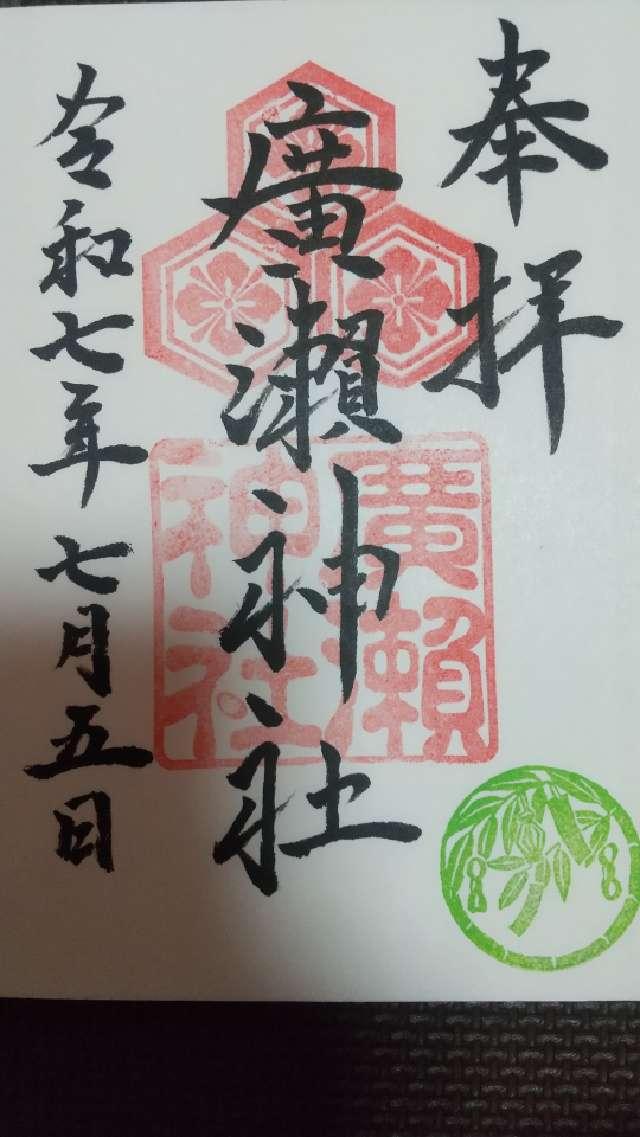 奉拝
廣瀬神社
廣瀬
神社
令和七年七月五日